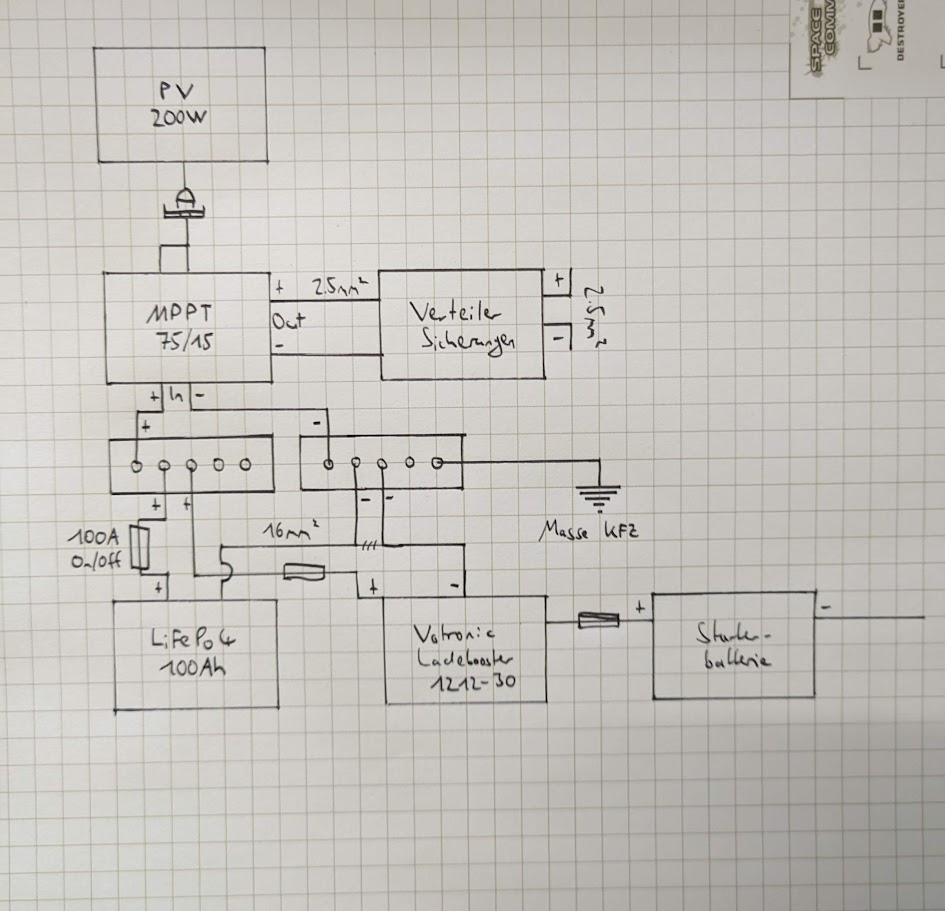 SPACE
COMM
DESTROYER
PV
200W
MPPT
75/15
+ 2.5mm²
Out
-
Verteiler
Sicherungen
+
-
2.5m²
+ In -
+
-
+ +
- -
100A
On/Off
+
16mm²
Masse KFZ
+
-
LiFePo4
100Ah
Votronic
Ladebooster
1212-30
+
Starter-
batterie
-